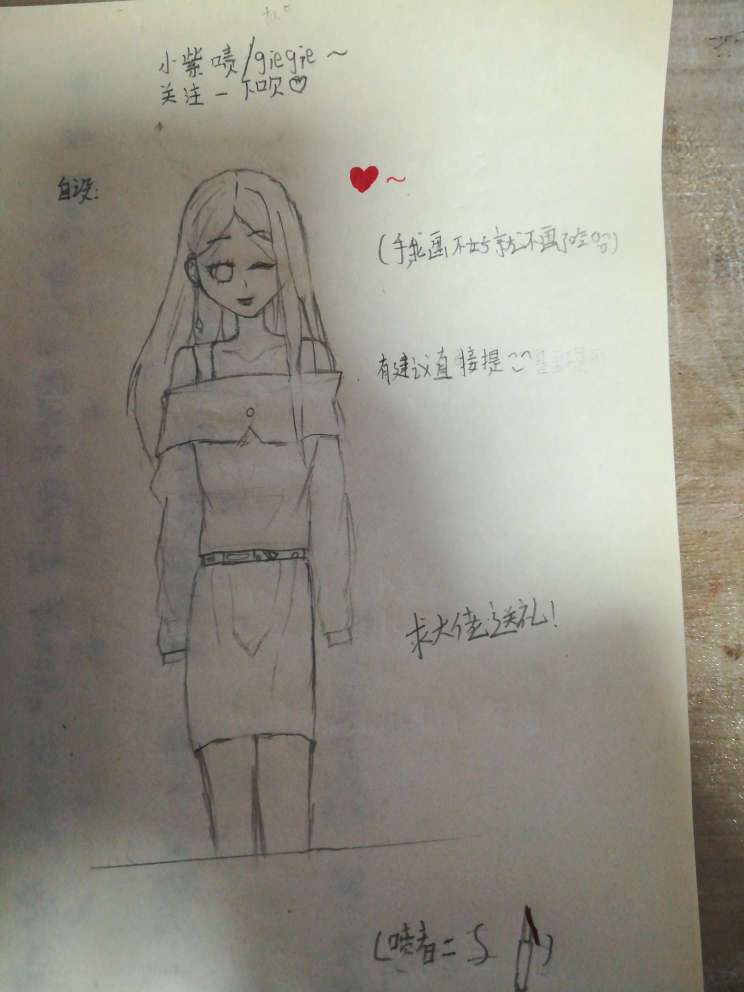 小紫啧/giegie～
关注一下呗♡
自设：
♥～
(手我画不好就不画了哈哈)
有建议直接提
求大佬送礼！
(喷者=S